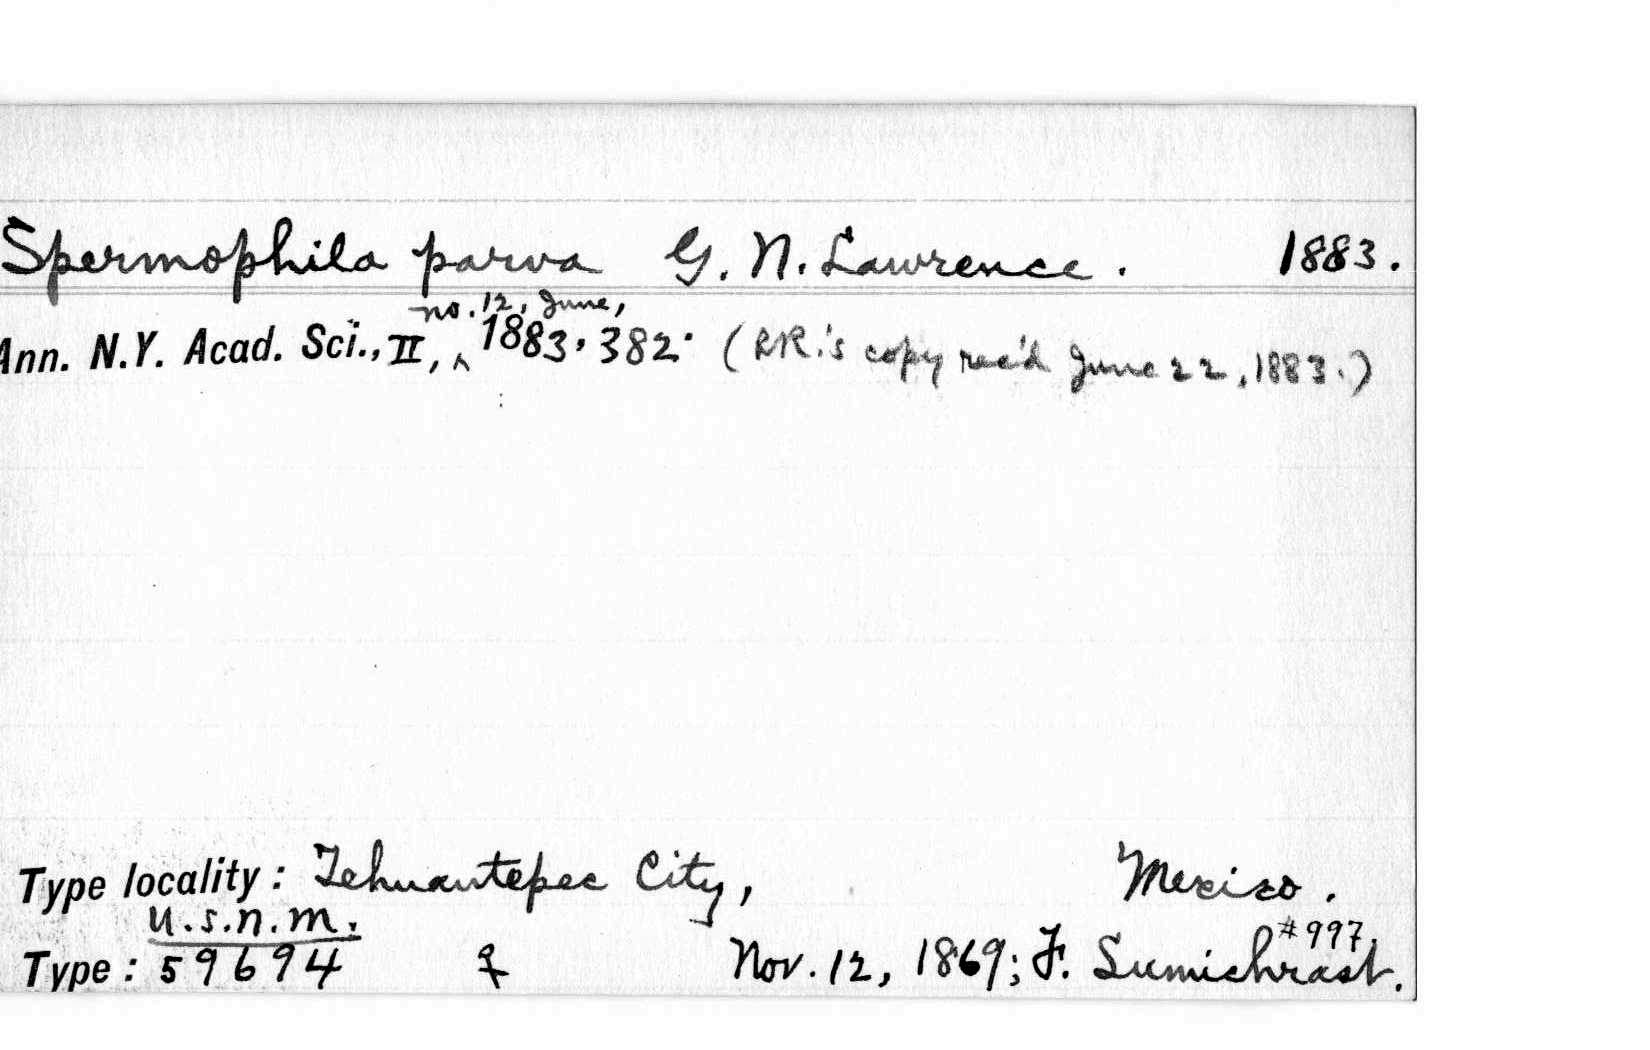 Spermophila parva G. N. Lawrence. 1883.
no. 12, June,
Ann. N.Y. Acad. Sci., II, ^ 1883, 382. (RR.'s copy rec'd June 22, 1883.)
Type locality: Tehuantepec City, Mexico.
U.S.N.M. #997,
Type: 59694 ♀ Nov. 12, 1869; F. Sumichrast.